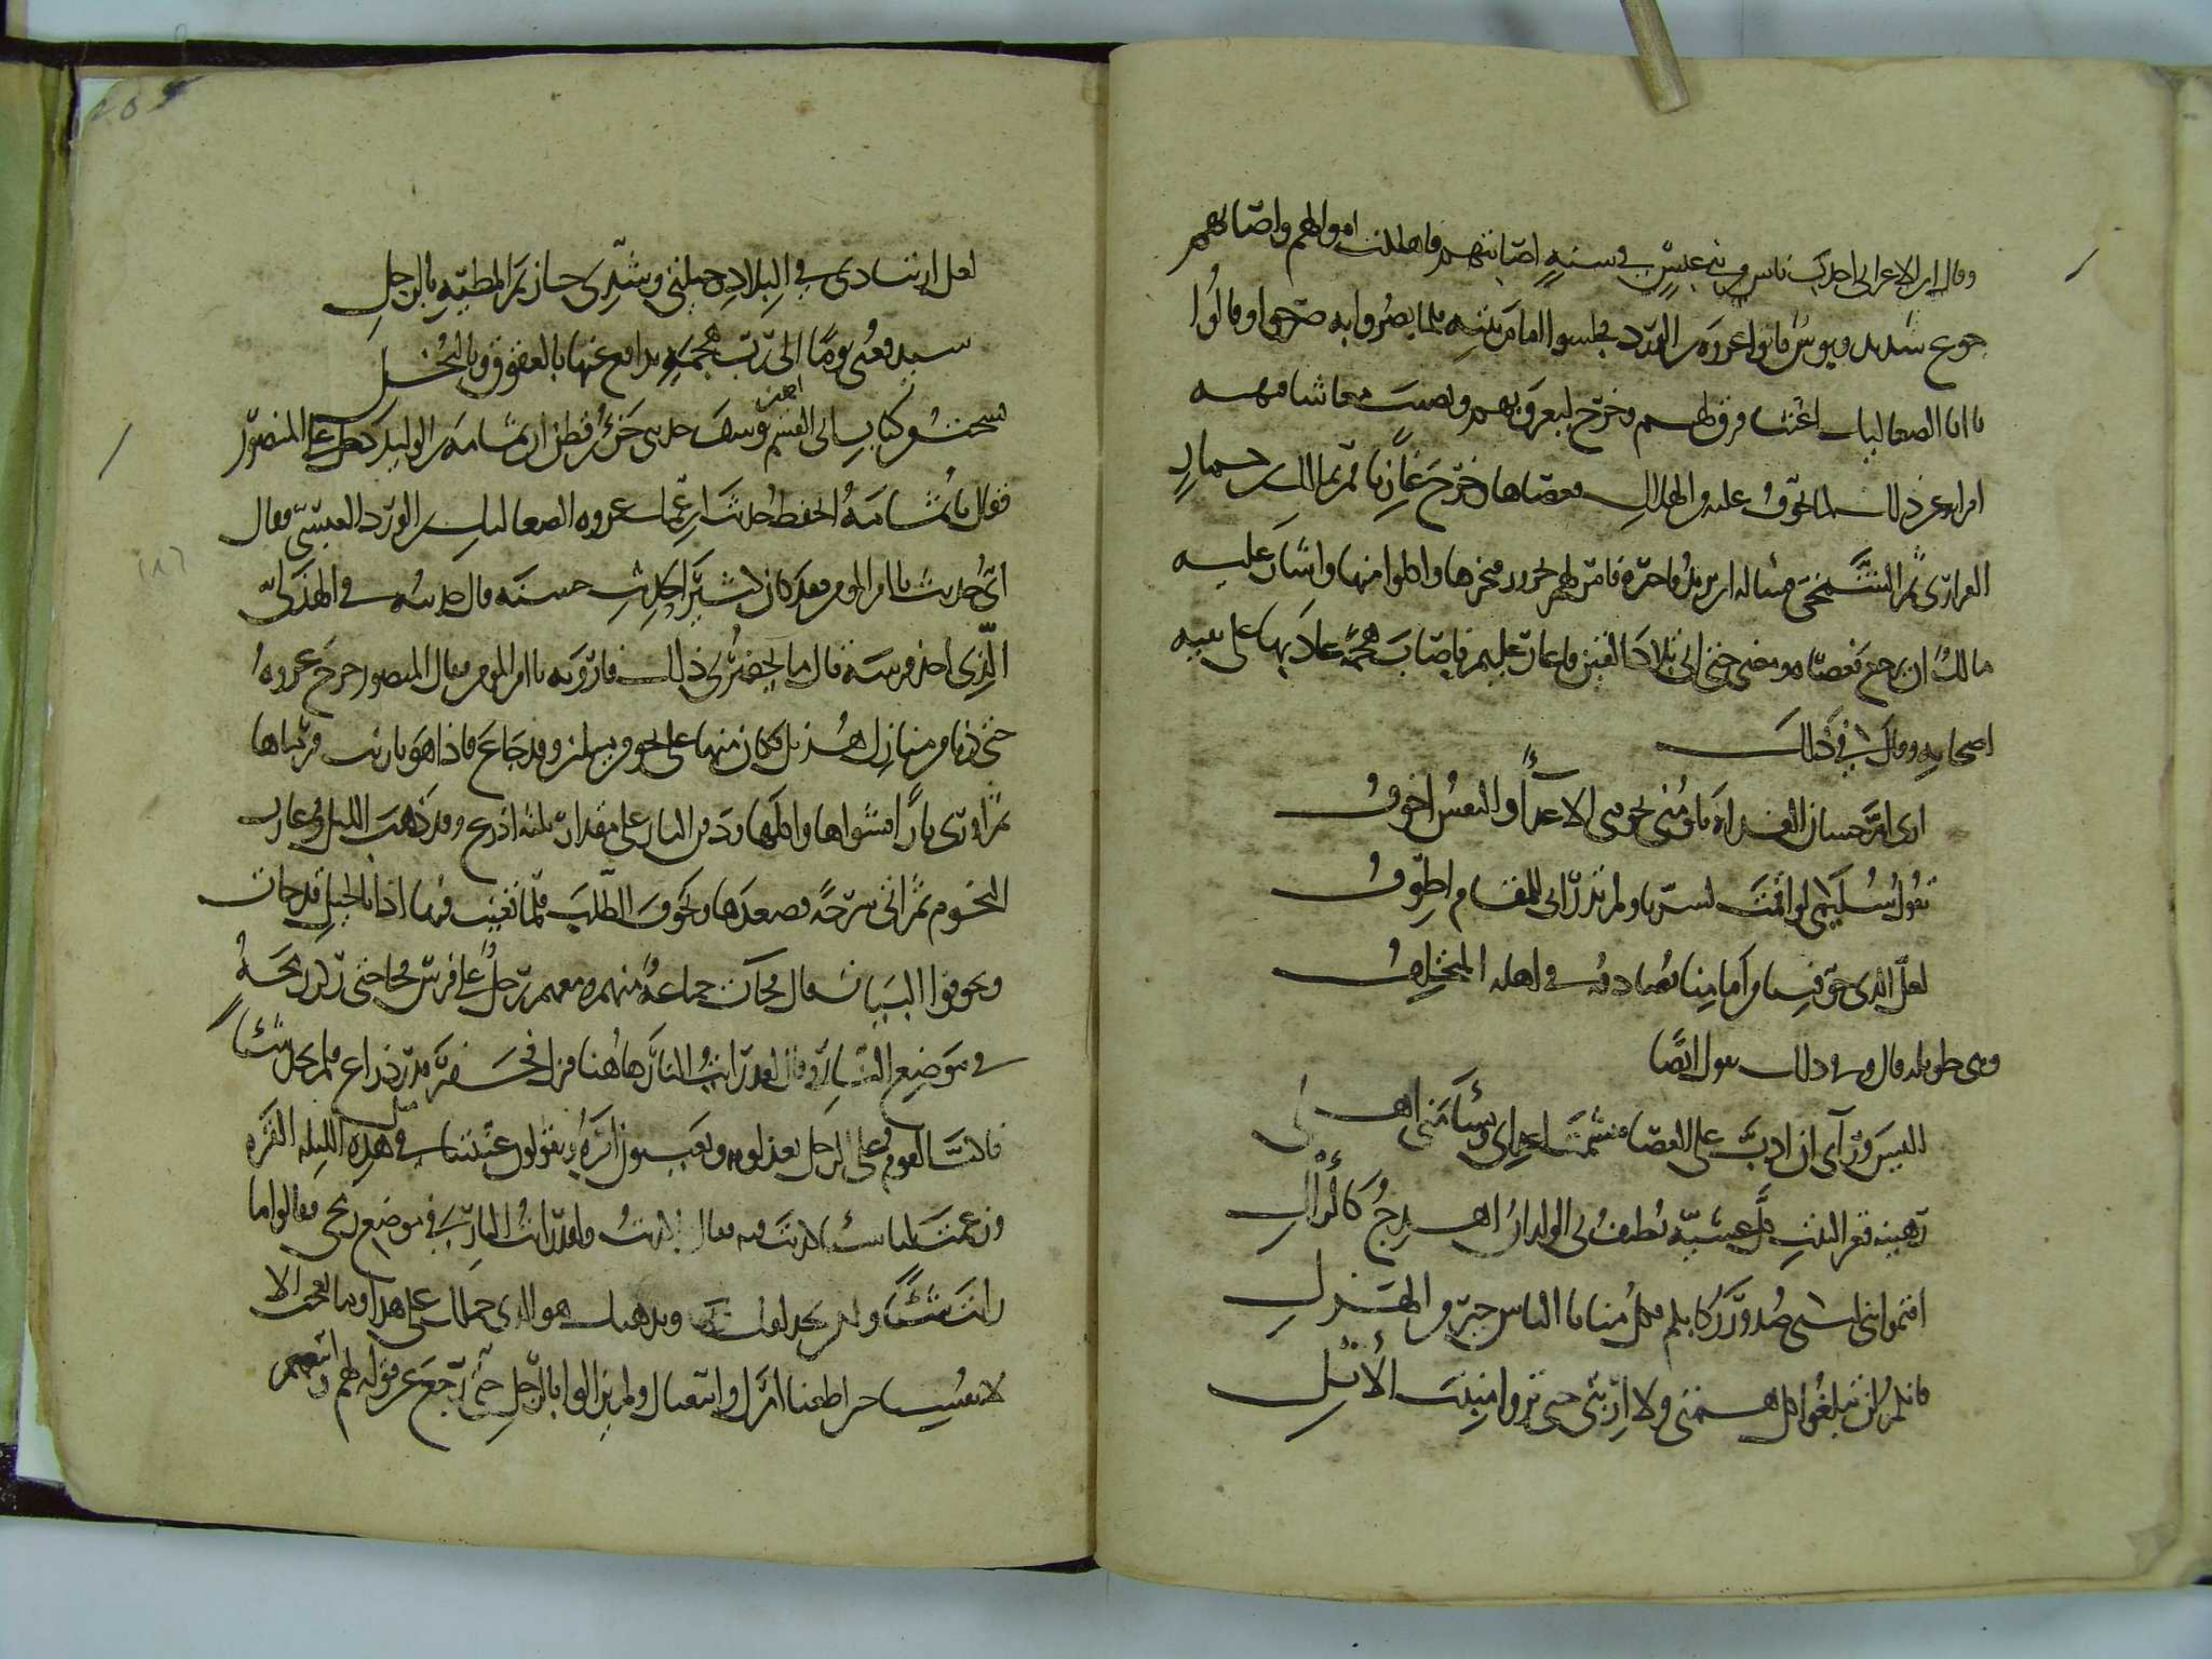 وقال ابن الاعرابى اجدب ناس من بنى عبس فى سنة اصابتهم فاهلكت اموالهم واصابهم
جوع شديد وبوس فاتوا عروة بن الورد فجلسوا امام بيته فلما بصروا به صرخوا وقالوا
يا ابا الصعاليك اغثنا فرق لهم وخرج ليغزو بهم ويصيب معاشا فنهته
امراته عن ذلك لما تخوفت عليه من الهلاك فعصاها وخرج غازيا فمر بمالك بن حمار
الفزارى ثم الشمخى فساله اين يريد فاخبره فامر له بجزور فنحرها واكلوا منها واشار عليه
مالك ان يرجع فعصاه ومضى حتى انى بلاد بنى القين فاغار عليهم فاصاب هجمة عاد بها على نفسه
اصحابه وقال فى ذلك
ارى ام حسان الغداة تلومنى تخوفنى الاعداء والنفس اخوف
تقول سليمى لو اقمت لسرنا ولم تدر انى للمقام اطوف
لعل الذى خوفتنا من امامنا يصادفه فى اهله المتخلف
وهى طويلة قال وفى ذلك يقول ايضا
اليس ورآى ان ادب على العصا فتشمت اعداى ويسأمنى اهلى
رهينة قعر البيت كل عشية يطيف بى الولدان اهدج كالرأل
اقيموا بنى لبنى صدور ركابكم فكل منايا الناس خير من الهزل
فانكم لن تبلغوا كل همتى ولا اربتى حتى تروا منبت الأثل
٢٠٥
لعل ارتيادى فى البلاد وحيلتى وشدى حيازيم المطية بالرحل
سيدفعنى يوما الى رب هجمة يدافع عنها بالعقوق وبالبخل
نسخت من كتاب ابى القسم يوسف حدثنى حر بن قطن ان ثمامة بن الوليد دخل على المنصور
فقال يا ثمامة اتحفظ حديث ابن عمك عروة الصعاليك بن الورد العبسى فقال
اى حديثه يا امير المومنين فقد كان كثير الحديث حسنه قال حديثه فى الهذلى
الذى اخذ فرسه قال ما يحضرنى ذلك فارويه يا امير المومنين فقال المنصور خرج عروة
حتى دنا من منازل هذيل فكان منها على نحو من ميلين وقد جاع فاذا هو بارنب فرماها
ثم اورى نارا فشواها واكلها ودفن النار على مقدار ثلثة اذرع وقد ذهب الليل وغارت
النجوم ثم اتى سرحة فصعدها وتخوف الطلب فلما تغيب فيها اذا بالخيل قد جات
وتخوفوا البيات قال فجات جماعة منهم ومعهم رجل على فرس فجا حتى ركز رمحه
فى موضع النار وقال لقد رايت النار هاهنا فنزل فحفر قدر ذراع فلم يجد شئا
فاكب القوم على الرجل يعذلونه ويعيبون امره ويقولون عنيتنا فى مثل هذه الليلة القرة
وزعمت لنا شئا كذبت فيه فقال ما كذبت ولقد رايت النار فى موضع رمحى فقالوا ما
رايت شئا ولكن تحذلقك وتدهيك هو الذى حملك على هذا وما نعجب الا
لانفسنا حين اطعنا امرك واتبعناك ولم يزالوا بالرجل حتى رجع عن قوله لهم واتبعهم